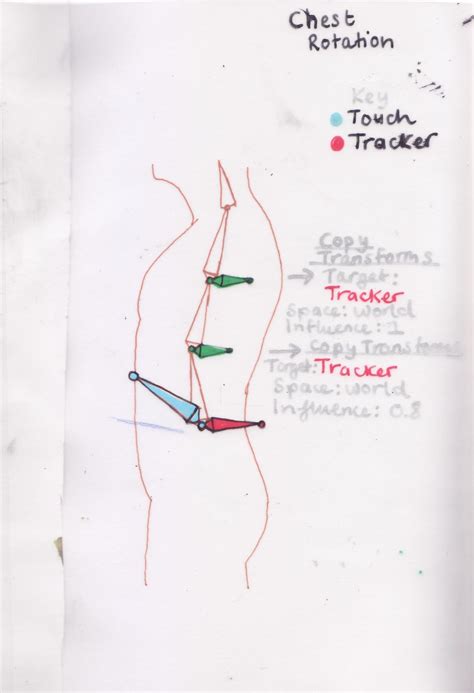 Chest
Rotation
Key
Touch
Tracker
Copy
Transforms
→ Target:
Tracker
Space: World
Influence: 1
→ Copy Transforms
Target: Tracker
Space: World
Influence: 0.8